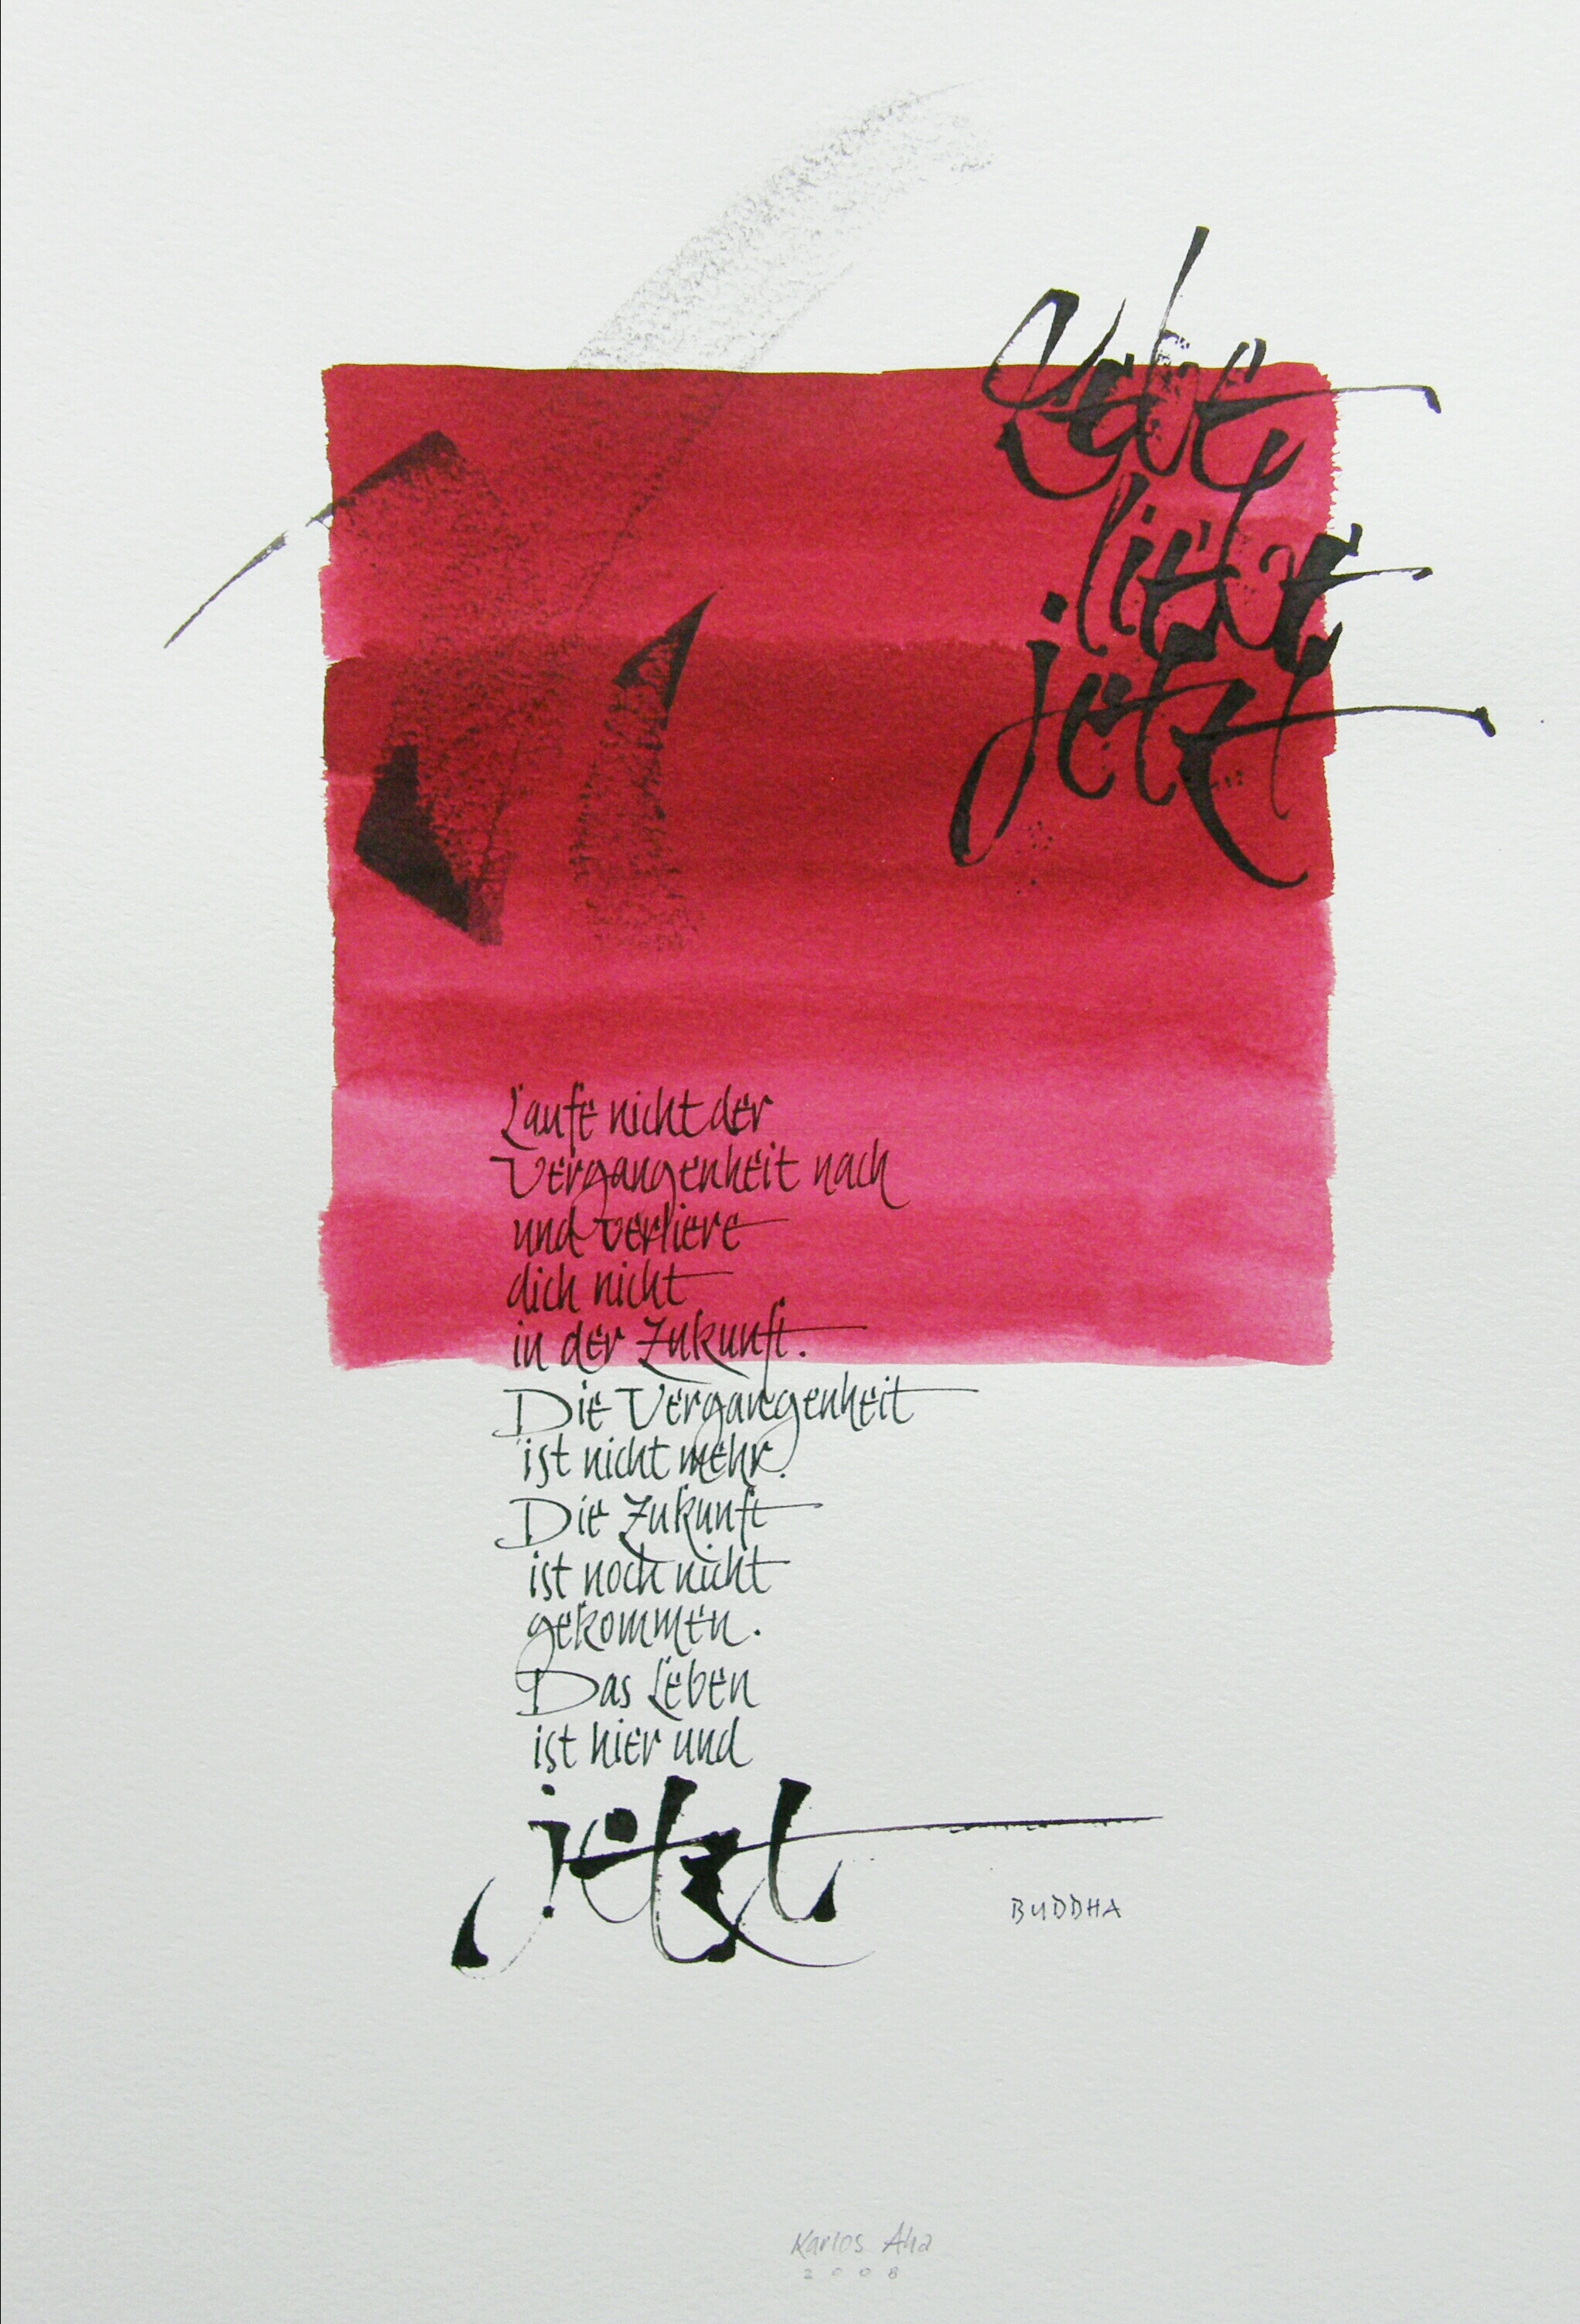 Lebe
liebe
jetzt
Laufe nicht der
Vergangenheit nach
und verliere
dich nicht
in der Zukunft.
Die Vergangenheit
ist nicht mehr.
Die Zukunft
ist noch nicht
gekommen.
Das Leben
ist hier und
jetzt
BUDDHA
Karlos Aha
2008